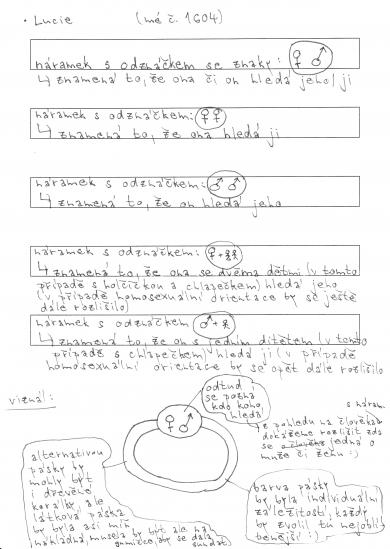 • Lucie (mé č. 1604)
náramek s odznáčkem se znaky: ♀ ♂
↳ znamená to, že ona či on hledá jeho/ji
náramek s odznáčkem: ♀♀
↳ znamená to, že ona hledá ji
náramek s odznáčkem: ♂♂
↳ znamená to, že on hledá jeho
náramek s odznáčkem: ♀+
↳ znamená to, že ona se dvěma dětmi (v tomto
případě s holčičkou a chlapečkem) hledá jeho
(v případě homosexuální orientace by se ještě
dále rozlišilo)
náramek s odznáčkem ♂+
↳ znamená to, že on s jedním dítětem (v tomto
případě s chlapečkem) hledá ji (v případě
homosexuální orientace by se opět dále rozlišilo
vizuál:
♀ ♂
odtud
se pozná
kdo koho
hledá
s náram.
z pohledu na člověka
dokážeme rozlišit zda
se o člověka jedná o
muže či ženu :)
alternativou
pásky by
mohly být
i dřevěné
korálky, ale
látková páska
by byla asi mín.
nákladná, musela by být ale na
gumičce aby se dala
sundat.
barva pásky
by byla individuální
záležitostí, každý
by zvolil tu nejoblí
benější :)